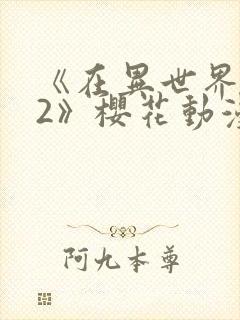 《在異世界
2》櫻花動漫
阿九本尊